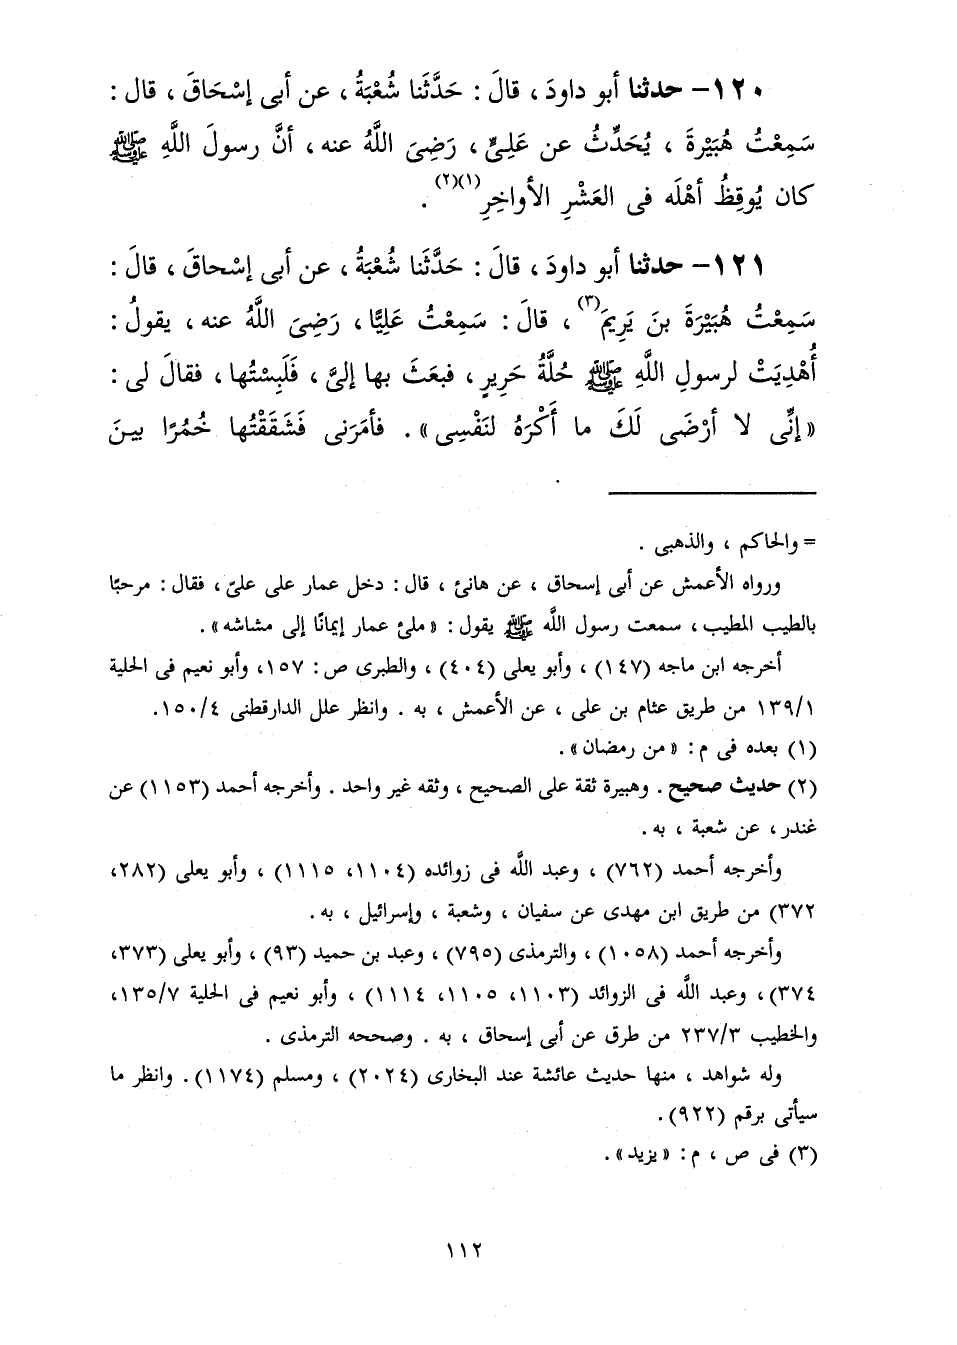 ١٢٠- حدثنا أبو داودَ ، قالَ : حَدَّثَنا شُعْبَةُ ، عن أبى إسْحَاقَ ، قال :
سَمِعْتُ هُبَيْرةَ ، يُحَدِّثُ عن عَلِىٍّ ، رَضِىَ اللَّهُ عنه ، أنَّ رسولَ اللَّهِ ﷺ
كان يُوقِظُ أهْلَه فى العَشْرِ الأواخِرِ(١)(٢) .
١٢١- حدثنا أبو داودَ ، قالَ : حَدَّثَنا شُعْبَةُ ، عن أبى إسْحاقَ ، قالَ :
سَمِعْتُ هُبَيْرَةَ بنَ يَرِيمَ(٣) ، قالَ : سَمِعْتُ عَلِيًّا ، رَضِىَ اللَّهُ عنه ، يقولُ :
أُهْدِيَتْ لرسولِ اللَّهِ ﷺ حُلَّةُ حَرِيرٍ ، فبعَثَ بها إلىَّ ، فَلَبِسْتُها ، فقالَ لى :
« إنِّى لا أرْضَى لَكَ ما أَكْرَهُ لنَفْسِى » . فأمَرَنى فَشَقَقْتُها خُمُرًا بينَ
= والحاكم ، والذهبى .
ورواه الأعمش عن أبى إسحاق ، عن هانئ ، قال : دخل عمار على علىّ ، فقال : مرحبًا
بالطيب المطيب ، سمعت رسول اللَّه ﷺ يقول : « ملئ عمار إيمانًا إلى مشاشه » .
أخرجه ابن ماجه (١٤٧) ، وأبو يعلى (٤٠٤) ، والطبرى ص : ١٥٧، وأبو نعيم فى الحلية
١٣٩/١ من طريق عثام بن على ، عن الأعمش ، به . وانظر علل الدارقطنى ١٥٠/٤.
(١) بعده فى م : « من رمضان » .
(٢) حديث صحيح . وهبيرة ثقة على الصحيح ، وثقه غير واحد . وأخرجه أحمد (١١٥٣) عن
غندر ، عن شعبة ، به .
وأخرجه أحمد (٧٦٢) ، وعبد اللَّه فى زوائده (١١٠٤، ١١١٥) ، وأبو يعلى (٢٨٢،
٣٧٢) من طريق ابن مهدى عن سفيان ، وشعبة ، وإسرائيل ، به .
وأخرجه أحمد (١٠٥٨) ، والترمذى (٧٩٥) ، وعبد بن حميد (٩٣) ، وأبو يعلى (٣٧٣،
٣٧٤)، وعبد اللَّه فى الزوائد (١١٠٣، ١١٠٥، ١١١٤) ، وأبو نعيم فى الحلية ١٣٥/٧،
والخطيب ٢٣٧/٣ من طرق عن أبى إسحاق ، به . وصححه الترمذى .
وله شواهد ، منها حديث عائشة عند البخارى (٢٠٢٤) ، ومسلم (١١٧٤) . وانظر ما
سيأتى برقم (٩٢٢) .
(٣) فى ص ، م : « يزيد » .
١١٢